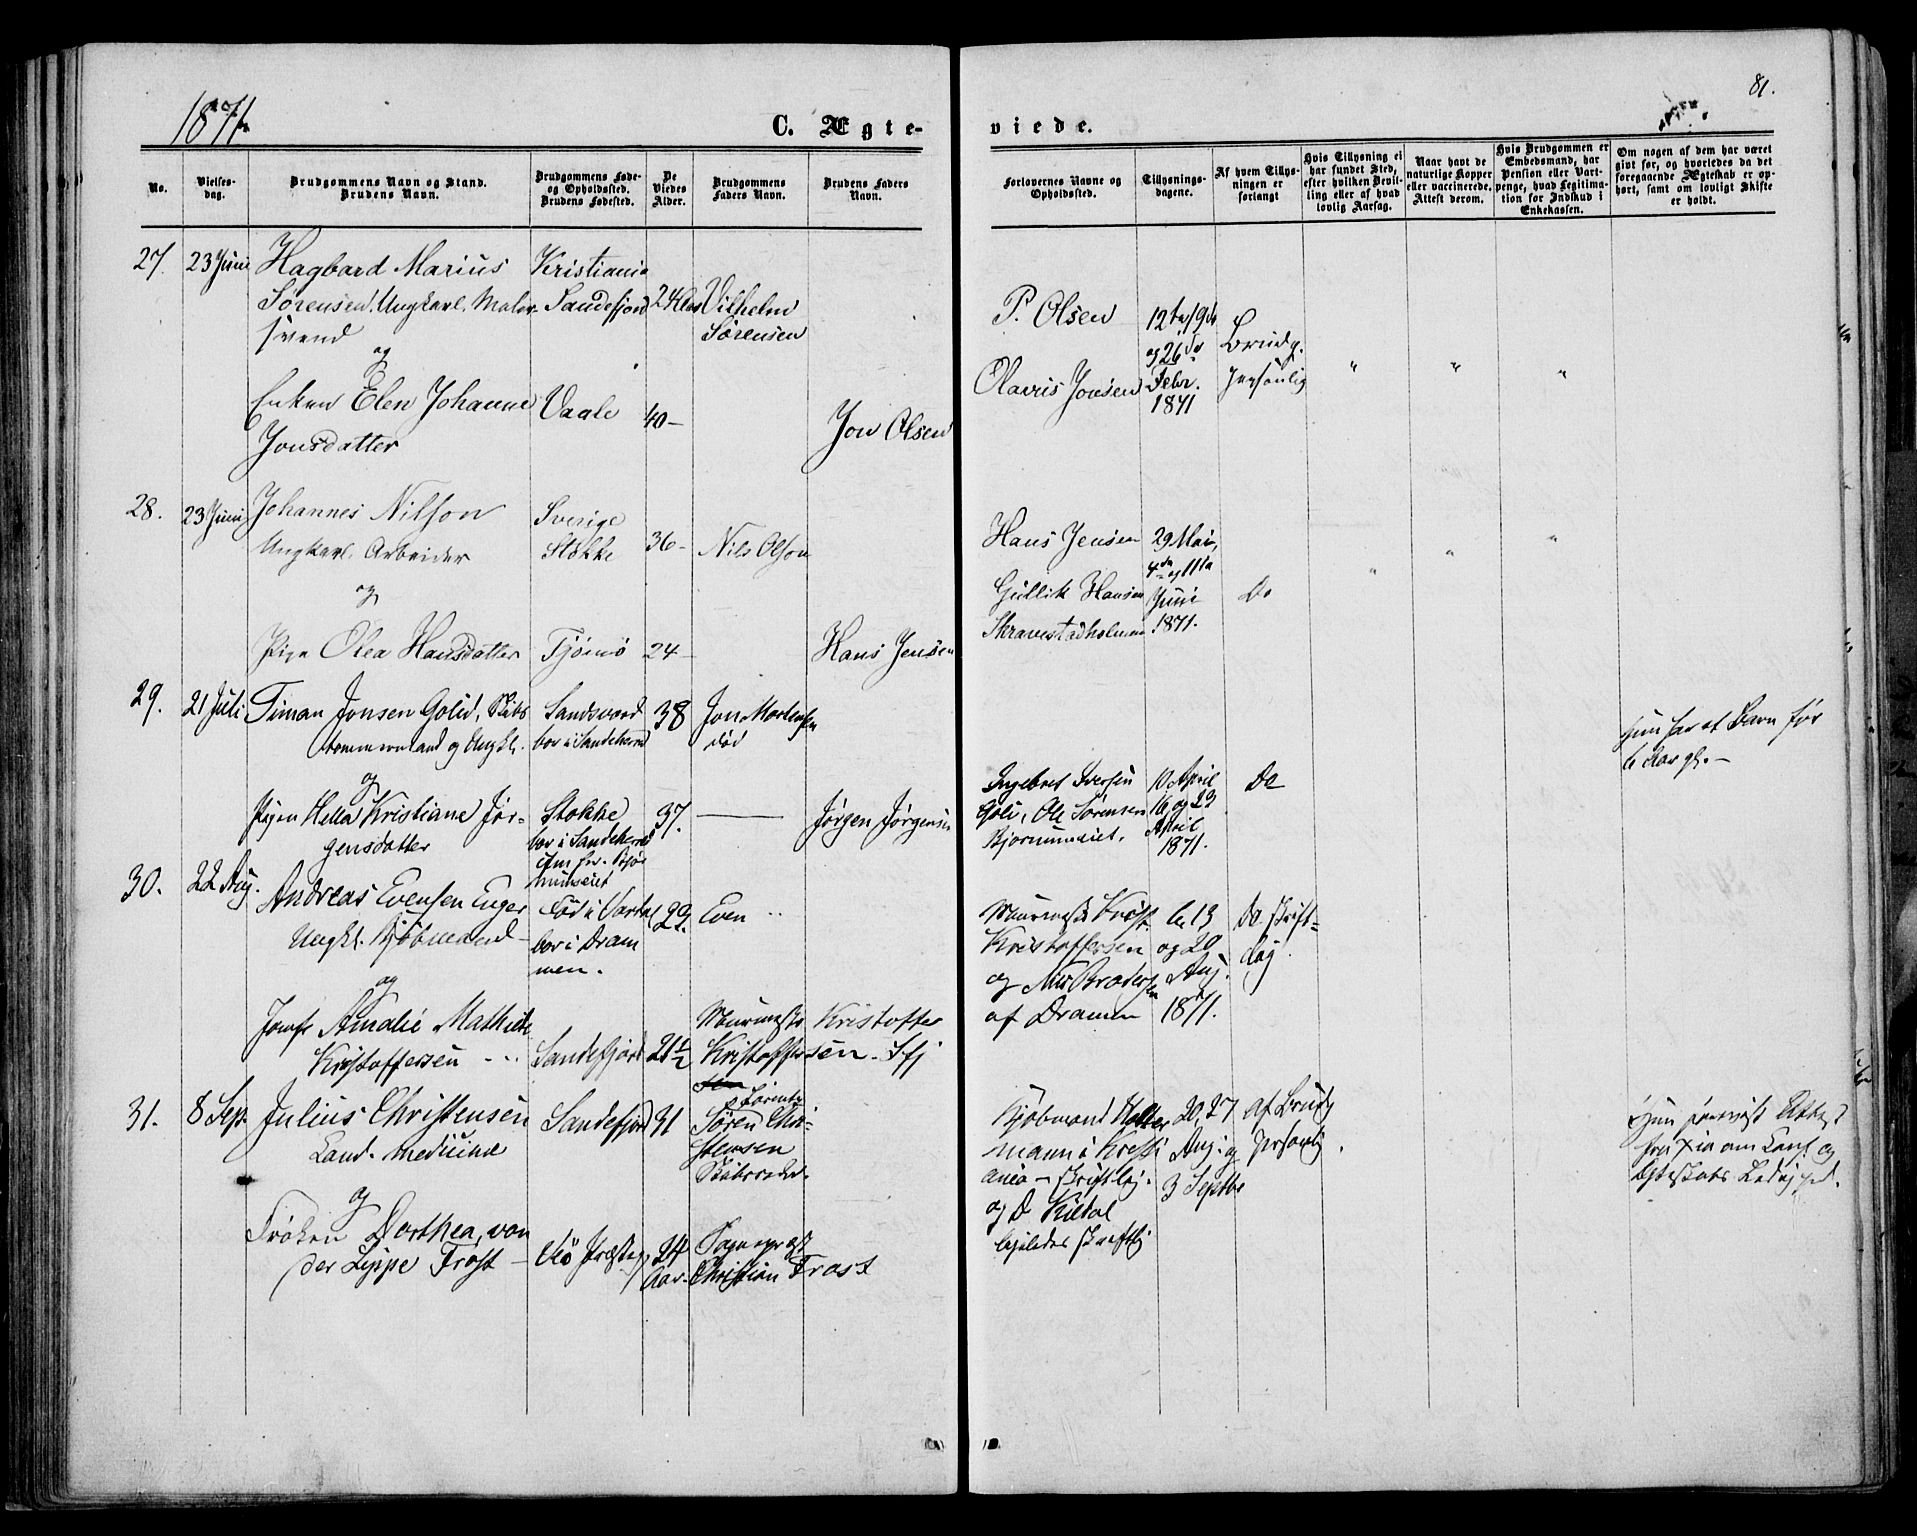 1871.
81.
C. Ægte-
viede.
No.
Vielses-
dag.
Brudgommens Navn og Stand.
Brudens Navn.
Brudgommens Føde-
og Opholdssted.
Brudens Fødested.
De
Viedes
Alder.
Brudgommens
Faders Navn.
Brudens Faders
Navn.
Forlovernes Navne og
Opholdssted.
Tillysnings-
dagene.
Af hvem Tillys-
ningen er
forlangt
Hvis Tillysning ei
har fundet Sted,
efter hvilken Bevil-
ling eller af hvad
lovlig Aarsag.
Naar havt de
naturlige Kopper
eller vaccinerede.
Attest derom.
Hvis Brudgommen er
Embedsmand, har
Pension eller Vart-
penge, hvad Legitima-
tion for Indskud i
Enkekassen.
Om nogen af dem har været
gift før, og hvorledes da det
foregaaende Ægteskab er op-
hørt, samt om lovligt Skifte
er holdt.
27. 23 Juni Hagbard Marius Kristiania
Sørensen, Ungkarl. Maler- Sandefjord 24 Vilhelm
svend Sørensen
og
Enken Elen Johanne Vaale 40 –
Jonsdatter Jon Olsen
P. Olsen 12te 19de
og 26de Brudg.
Olavus Jonsen Febr. personlig " " "
1871
28. 23 Juni Johannes Nilson Sverige
Ungkarl. Arbeider Stokke 36 – Nils Olson
og
Pige Olea Hansdatter Tjømø 24 – Hans Jensen
Hans Jensen 29 Mai,
4de og 11te
Gullik Hansen Juni Do " " "
1871.
29. 21 Juli Timan Jonsen Golid, Skibs Sandsværd 38 Jon Mortensen
tømmermand og Ungkl. bor i Sandeherred død
og
Pigen Helle Kristiane Jør- Stokke 37. — Jørgen Jørgensen
gensdatter bor i Sandeherred
Ingebret Iversen 10 April Do
Goli, Ole Sørensen 16 og 23
April
1871.
Hun har et Barn før
6 Aar gl. –
30. 22 Aug. Andreas Evensen Enger Fød i Vardal 29. Even "
Ungkl. Kjøbmand – bor i Dram
men.
og
Jomfr Amalie Mathilde Murmester Kristoffer
Kristoffersen Sandefjord 21½ Kristoffersen. Sfj
Murmester Kristoffer 6. 13 Do skrift=
Kristoffersen og 20 lig
og Aug.
af Dramen 1871.
31. 8 Sept Julius Christensen Sandefjord 31 Søren Chri-
Cand. medicine stensen
Skibsreder.
og
Frøken Dorthea, von
der Lippe Frost – 24 Sogneprest
Aar Christian Frost
Kjøbmand 20, 27 af Brudg
mann i Kristi Aug. og personlig.
ania – skriftlig. 3 Septbr
og D
ligeledes skriftlig